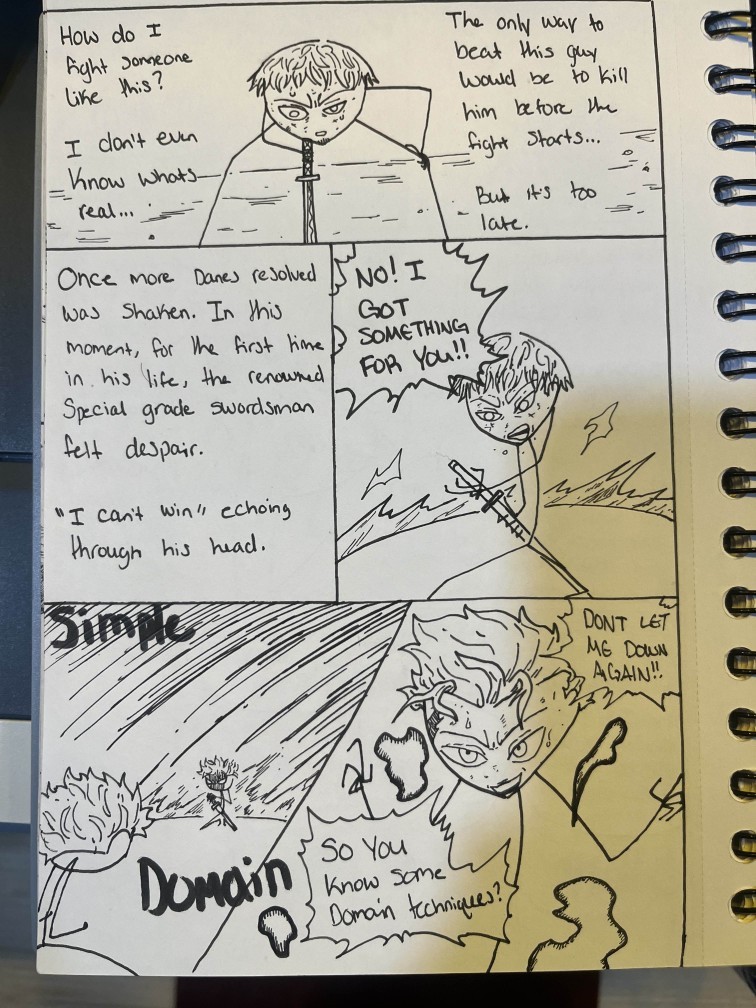 How do I
fight someone
like this?
I don't even
know whats
real...
The only way to
beat this guy
would be to kill
him before the
fight starts...
But it's too
late.
Once more Danes resolved
was shaken. In this
moment, for the first time
in his life, the renowned
Special grade swordsman
felt despair.
"I can't win" echoing
through his head.
NO! I
GOT
SOMETHING
FOR YOU!!
Simple
Domain
DONT LET
ME DOWN
AGAIN!!
So You
know some
Domain techniques?